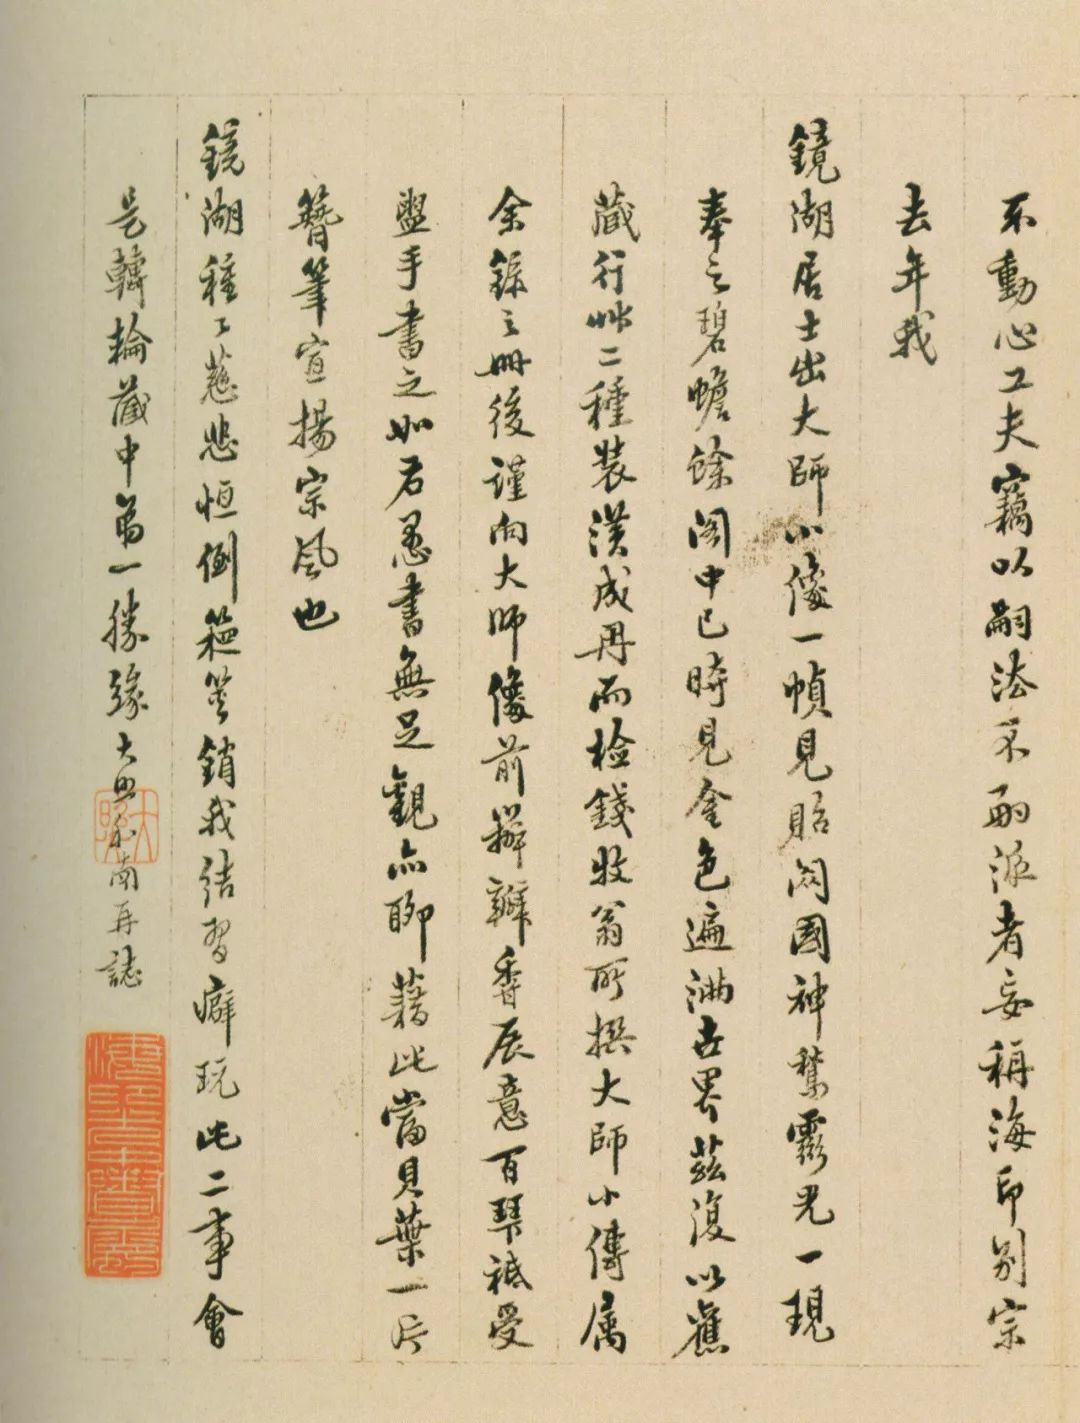 不動心工夫竊以嗣法不嗣派者妄稱海印别宗
去年我
鏡湖居士出大師小像一幀見貽閱國神㹅靈光一現
奉之碧蟾餘閣中已時見金色遍滿世界茲復以舊
藏行草二種裝潢成再而檢錢牧翁所撰大師小傳属
余録之册後謹向大師像前辦瓣香展意百琴祗受
盥手書之如右愚書無足觀亦聊藉此當貝葉一片
簪筆宣揚宗風也
鏡湖種〻慈悲恒倒筵篋銷我結習癖玩此二事會
是轉輪藏中第一勝緣大照和南再誌